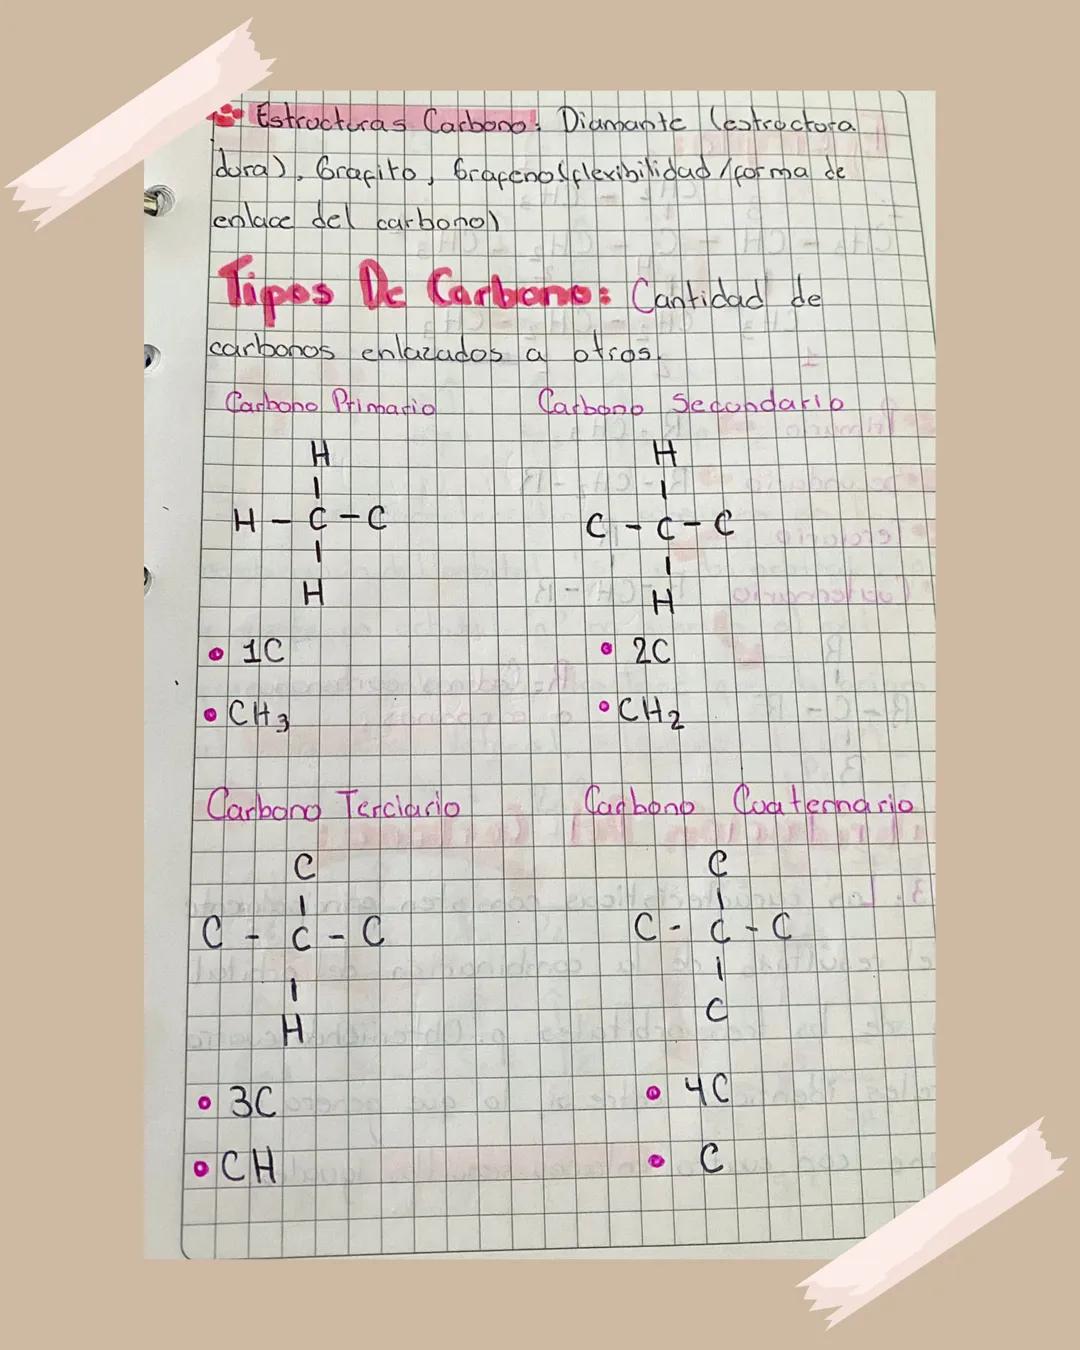 Estructuras Carbono: Diamante (estructura
dura), Grafito, Grafeno(flexibilidad/forma de
enlace del carbono)
Tipos De Carbono: Cantidad de
carbonos enlazados a otros.
Carbono Primario Carbono Secundario
H H
H - C - C C - C - C
H H
• 1C • 2C
• CH3 • CH2
Carbono Terciario Carbono Cuaternario
C C
C - C - C C - C - C
H C
• 3C • 4C
• CH • C